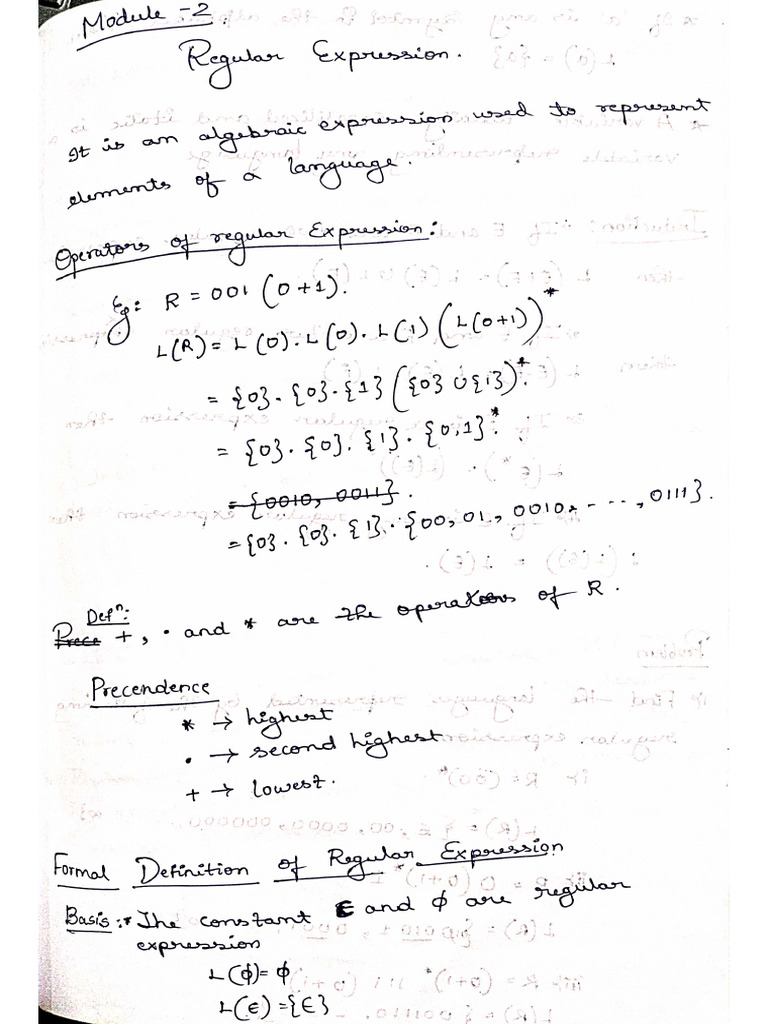 Module -2
Regular Expression.
It is an algebraic expression used to represent
elements of a language.
Operators of regular Expression:
Eg: R = 001 (0+1).
L(R) = L(0). L(0). L(1) (L(0+1))*
= {0}. {0}. {1} ({0} ∪ {1})*.
= {0}. {0}. {1}. {0,1}*.
= {0010, 0011}.
= {0}. {0}. {1}. {00, 01, 0010, - - - , 0111}.
Defⁿ:
Prece +, . and * are the operators of R.
Precendence
* → highest
. → second highest
+ → lowest.
Formal Definition of Regular Expression
Basis: * The constant ε and ϕ are regular
expression
L(ϕ) = ϕ
L(ϵ) = {ϵ}